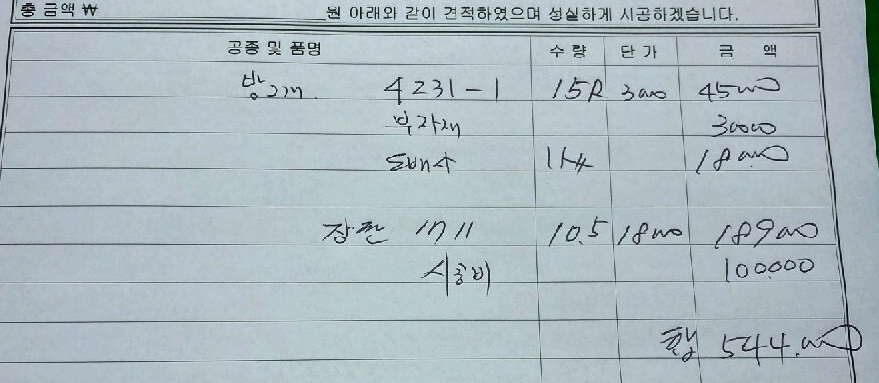 총 금액 ₩ 원 아래와 같이 견적하였으며 성실하게 시공하겠습니다.
공종 및 품명 수 량 단 가 금 액
방2개 4231-1 15R 3000 45000
부자재 30000
도배사 1人 180000
장판 1711 10.5 18000 189000
시공비 100.000
합 544.000